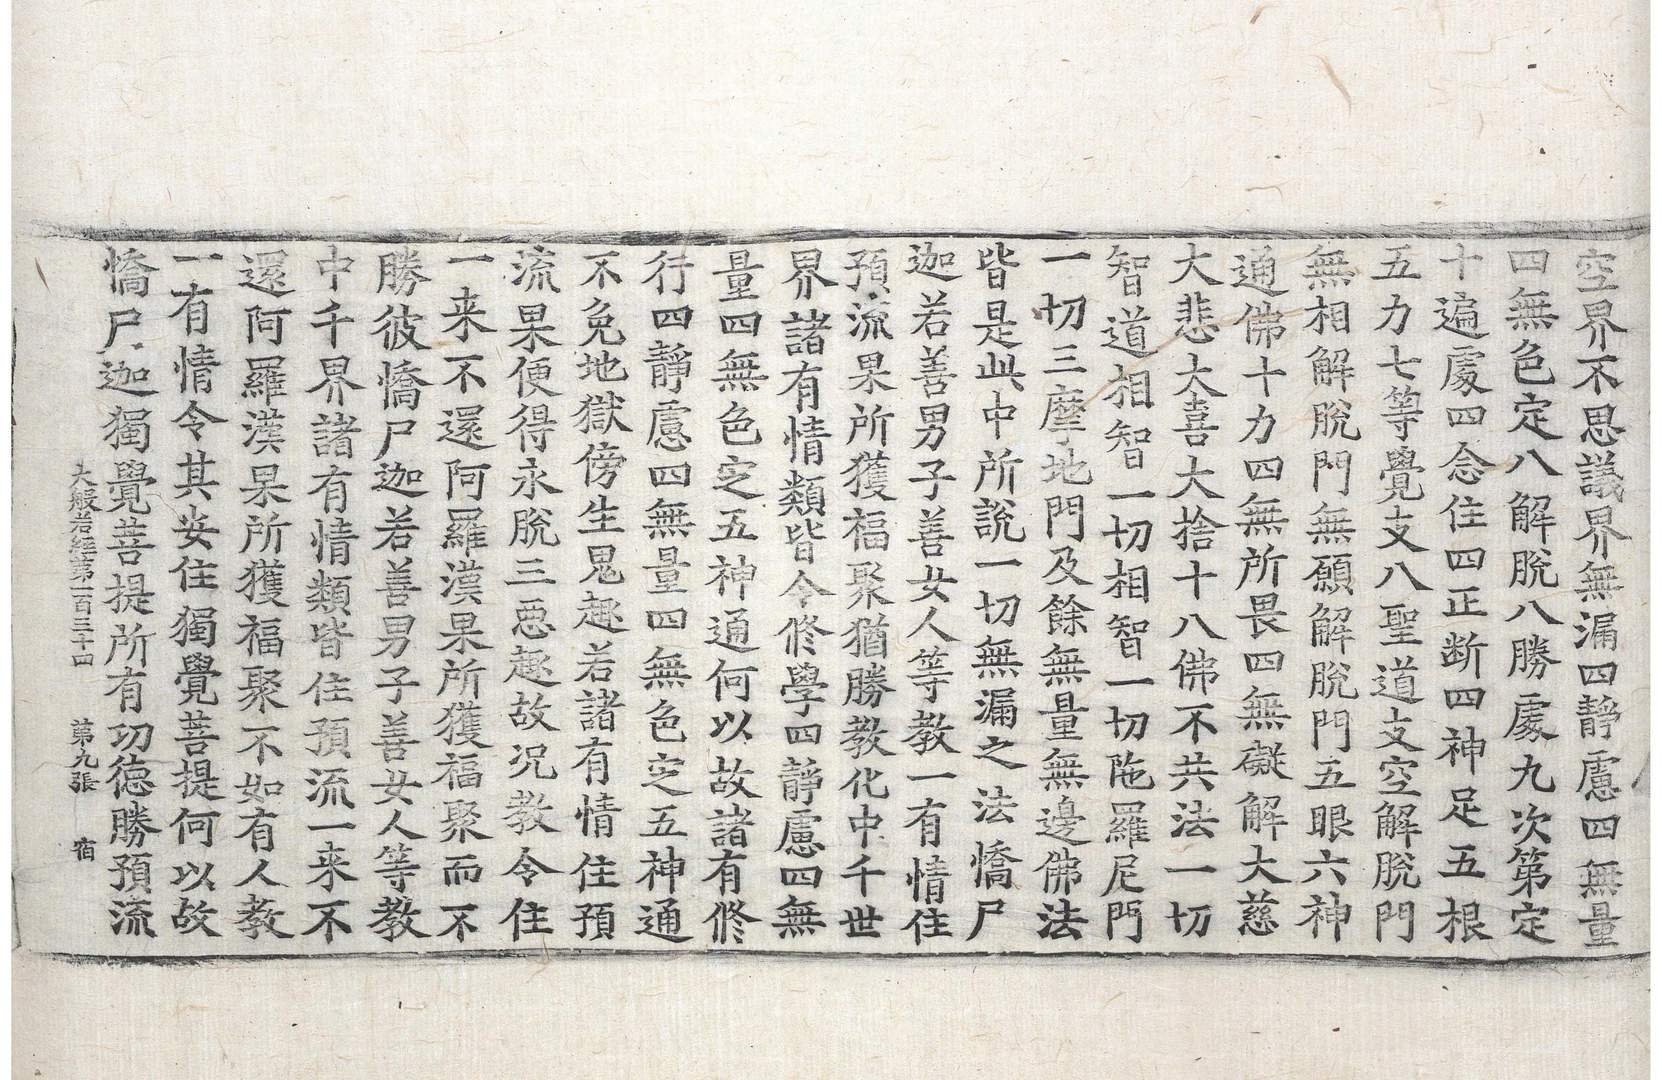 空界不思議界無漏四靜慮四無量
四無色定八解脫八勝處九次第定
十遍處四念住四正断四神足五根
五力七等覺支八聖道支空解脫門
無相解脫門無願解脫門五眼六神
通佛十力四無所畏四無礙解大慈
大悲大喜大捨十八佛不共法一切
智道相智一切相智一切陁羅尼門
一切三摩地門及餘無量無邊佛法
皆是此中所說一切無漏之法憍尸
迦若善男子善女人等教一有情住
預流果所獲福聚猶勝教化中千世
界諸有情類皆令修學四靜慮四無
量四無色㝎五神通何以故諸有修
行四靜慮四無量四無色㝎五神通
不免地獄傍生鬼趣若諸有情住預
流果便得永脫三惡趣故况教令住
一来不還阿羅漢果所獲福聚而不
勝彼憍尸迦若善男子善女人等教
中千界諸有情類皆住預流一来不
還阿羅漢果所獲福聚不如有人教
一有情令其安住獨覺菩提何以故
憍尸迦獨覺菩提所有功德勝預流
大般若經第一百三十四 第九張 宿